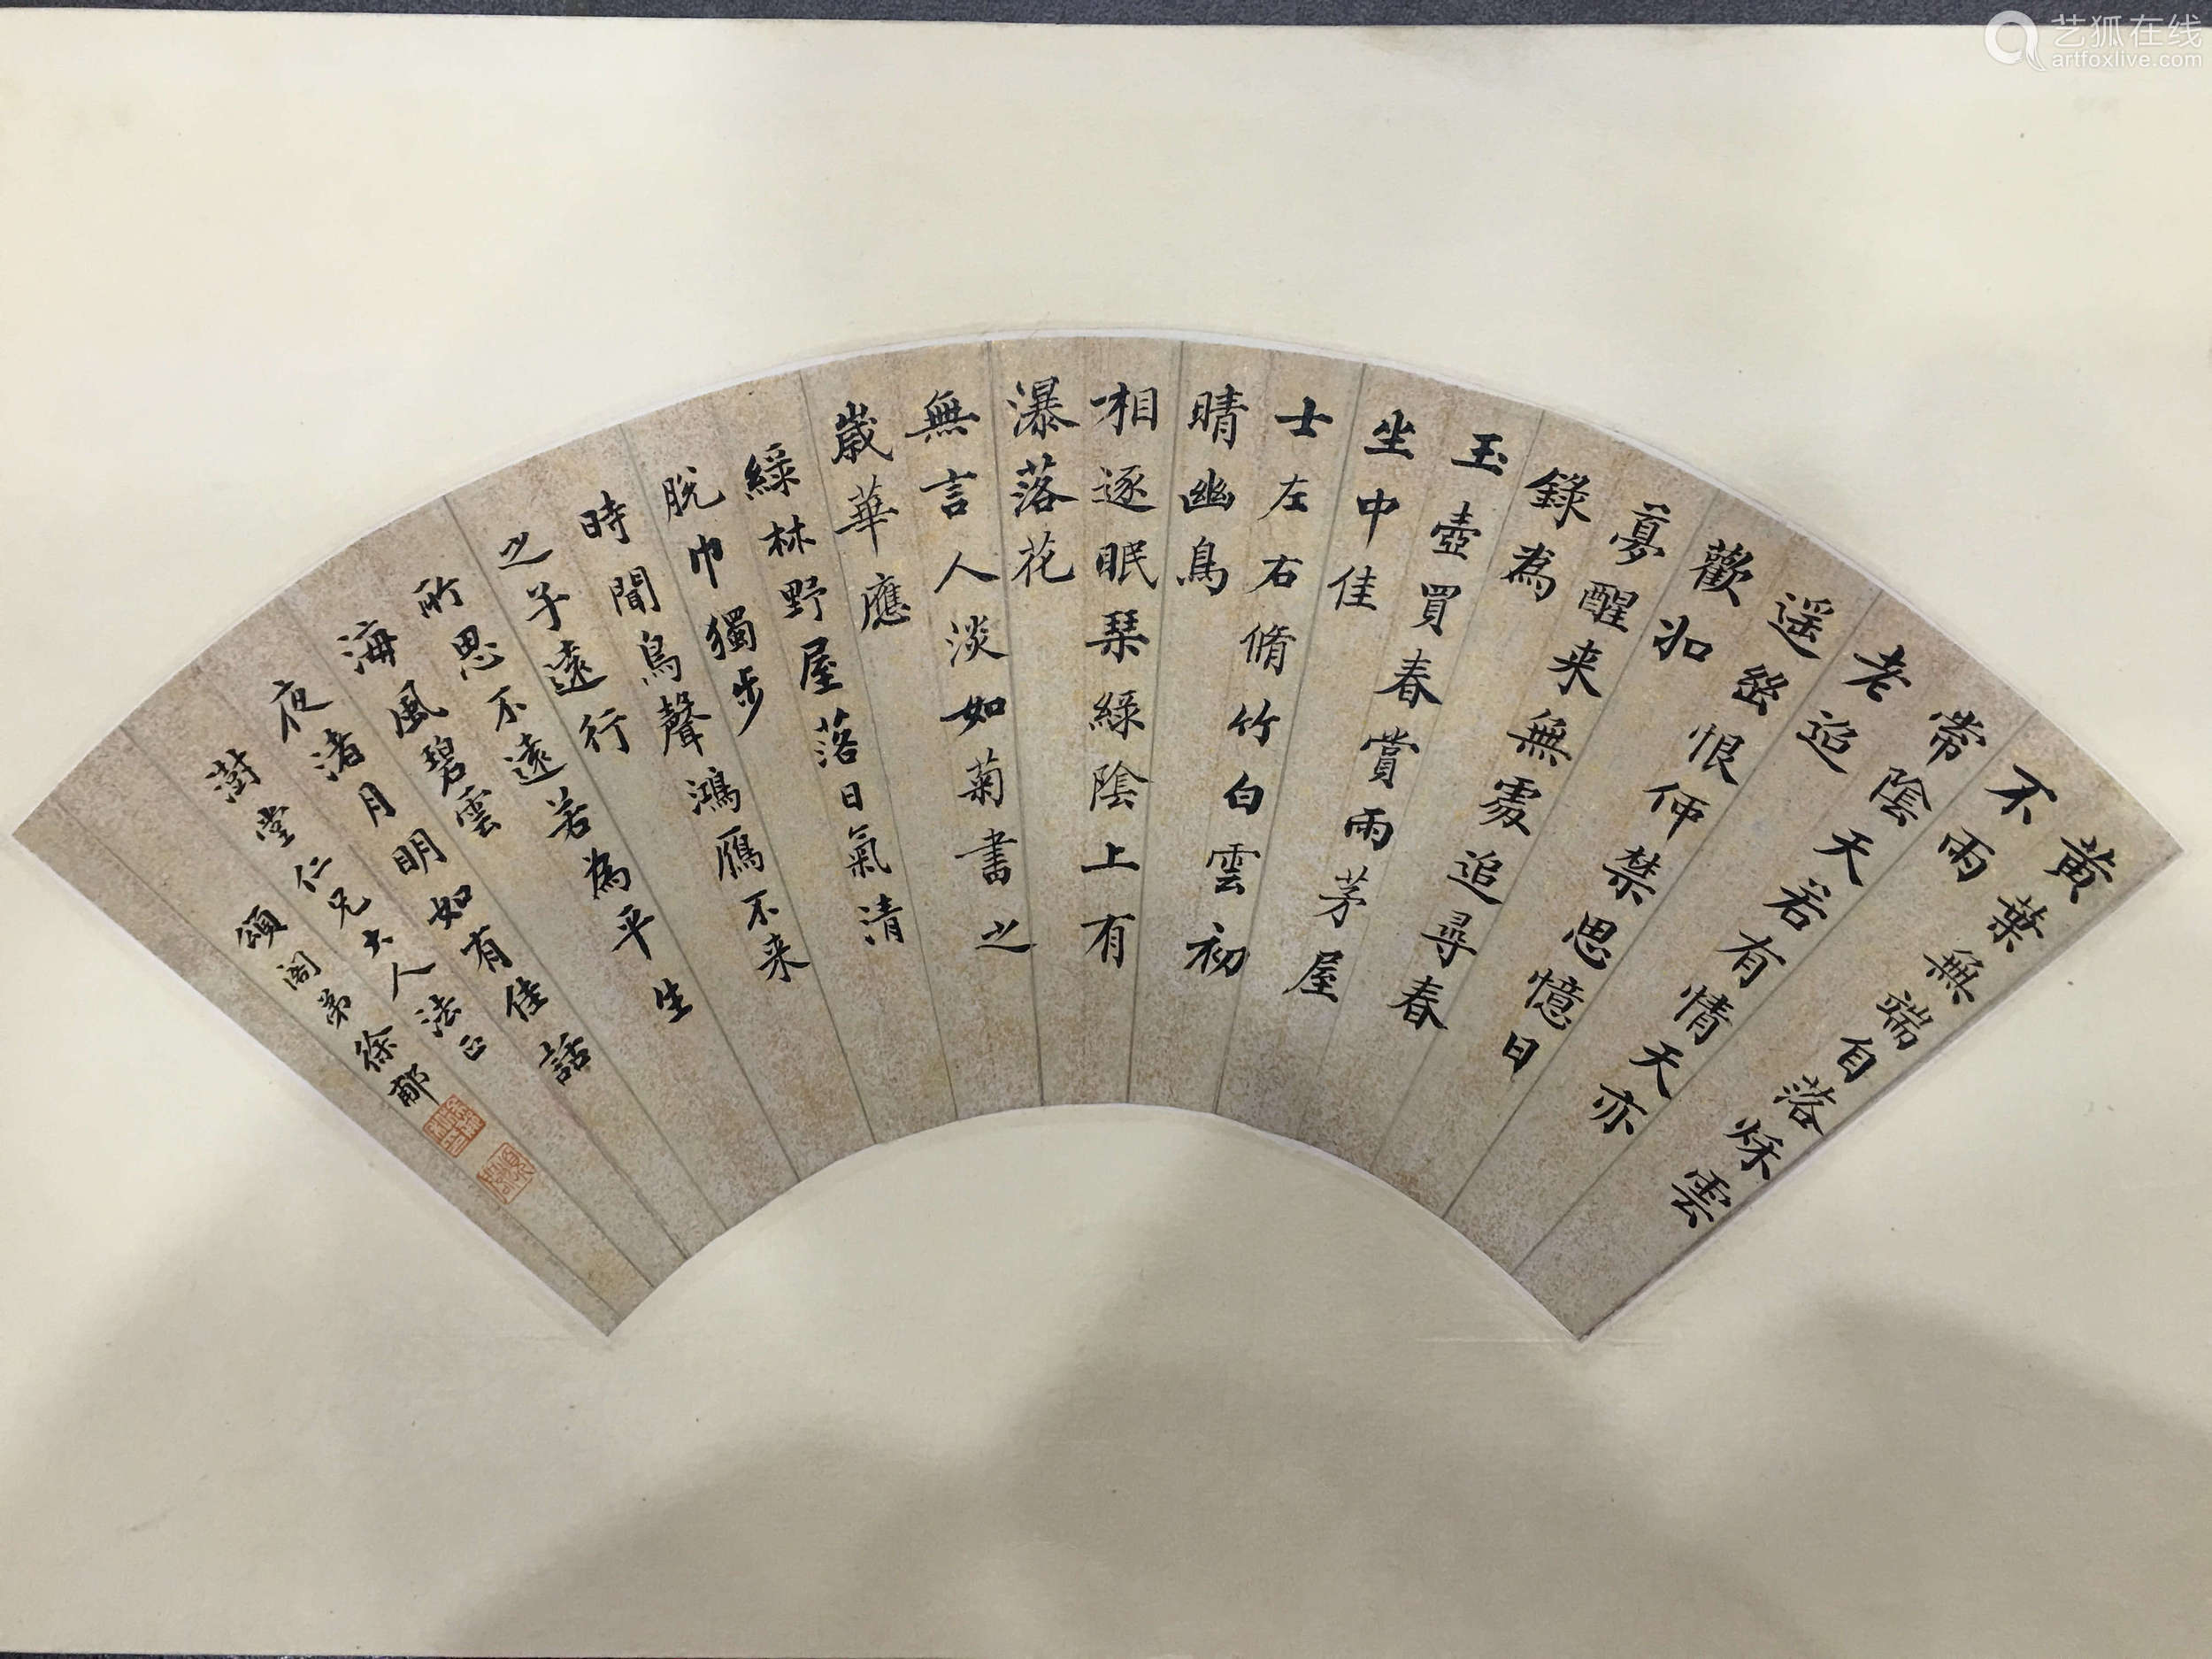 黄葉無端自落秌雲
不雨
常陰天若有情天亦
老迢
遥幽恨禁思憶日
歡如
夢醒来無處追尋春
錄為
玉壺買春賞雨茅屋
坐中佳
士左右脩竹白雲初
晴幽鳥
相逐眠琴綠陰上有
瀑落花
無言人淡如菊書之
歲華應
綠林野屋落日氣清
脫巾獨步
時聞鳥聲鴻鴈不来
之子遠行
所思不遠若為平生
海風碧雲
夜渚月明如有佳話
澍堂仁兄大人法正
頌閣弟徐郙
艺狐在线
artfoxlive.com